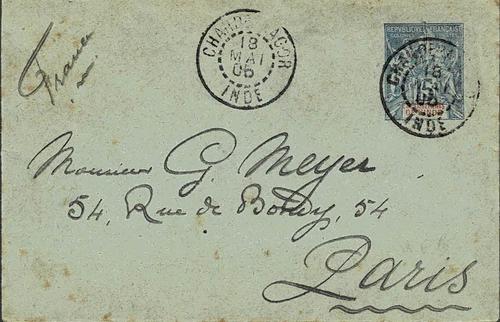 France
CHANDERNAGOR
18
MAI
05
INDE
REPUBLIQUE FRANÇAISE
CHANDERNAGOR
18
MAI
05
INDE
Monsieur G. Meyer
54, Rue de Bondy, 54
Paris